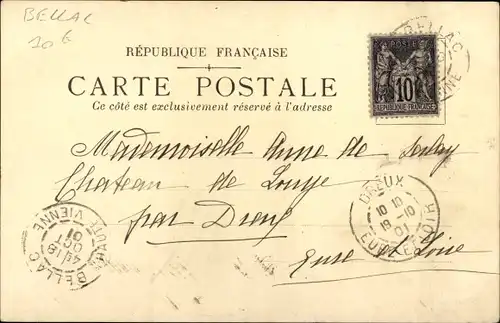 BELLAC
10€
RÉPUBLIQUE FRANÇAISE
CARTE POSTALE
Ce côté est exclusivement réservé à l'adresse
POSTE
10
RÉPUBLIQUE FRANÇAISE
BELLAC
Mademoiselle Anne de
Chateau de Louye
par Dreux
Eure et Loire
DREUX
10 10
18-10
01
EURE ET LOIR
BELLAC
HTE VIENNE
18
OCT
01